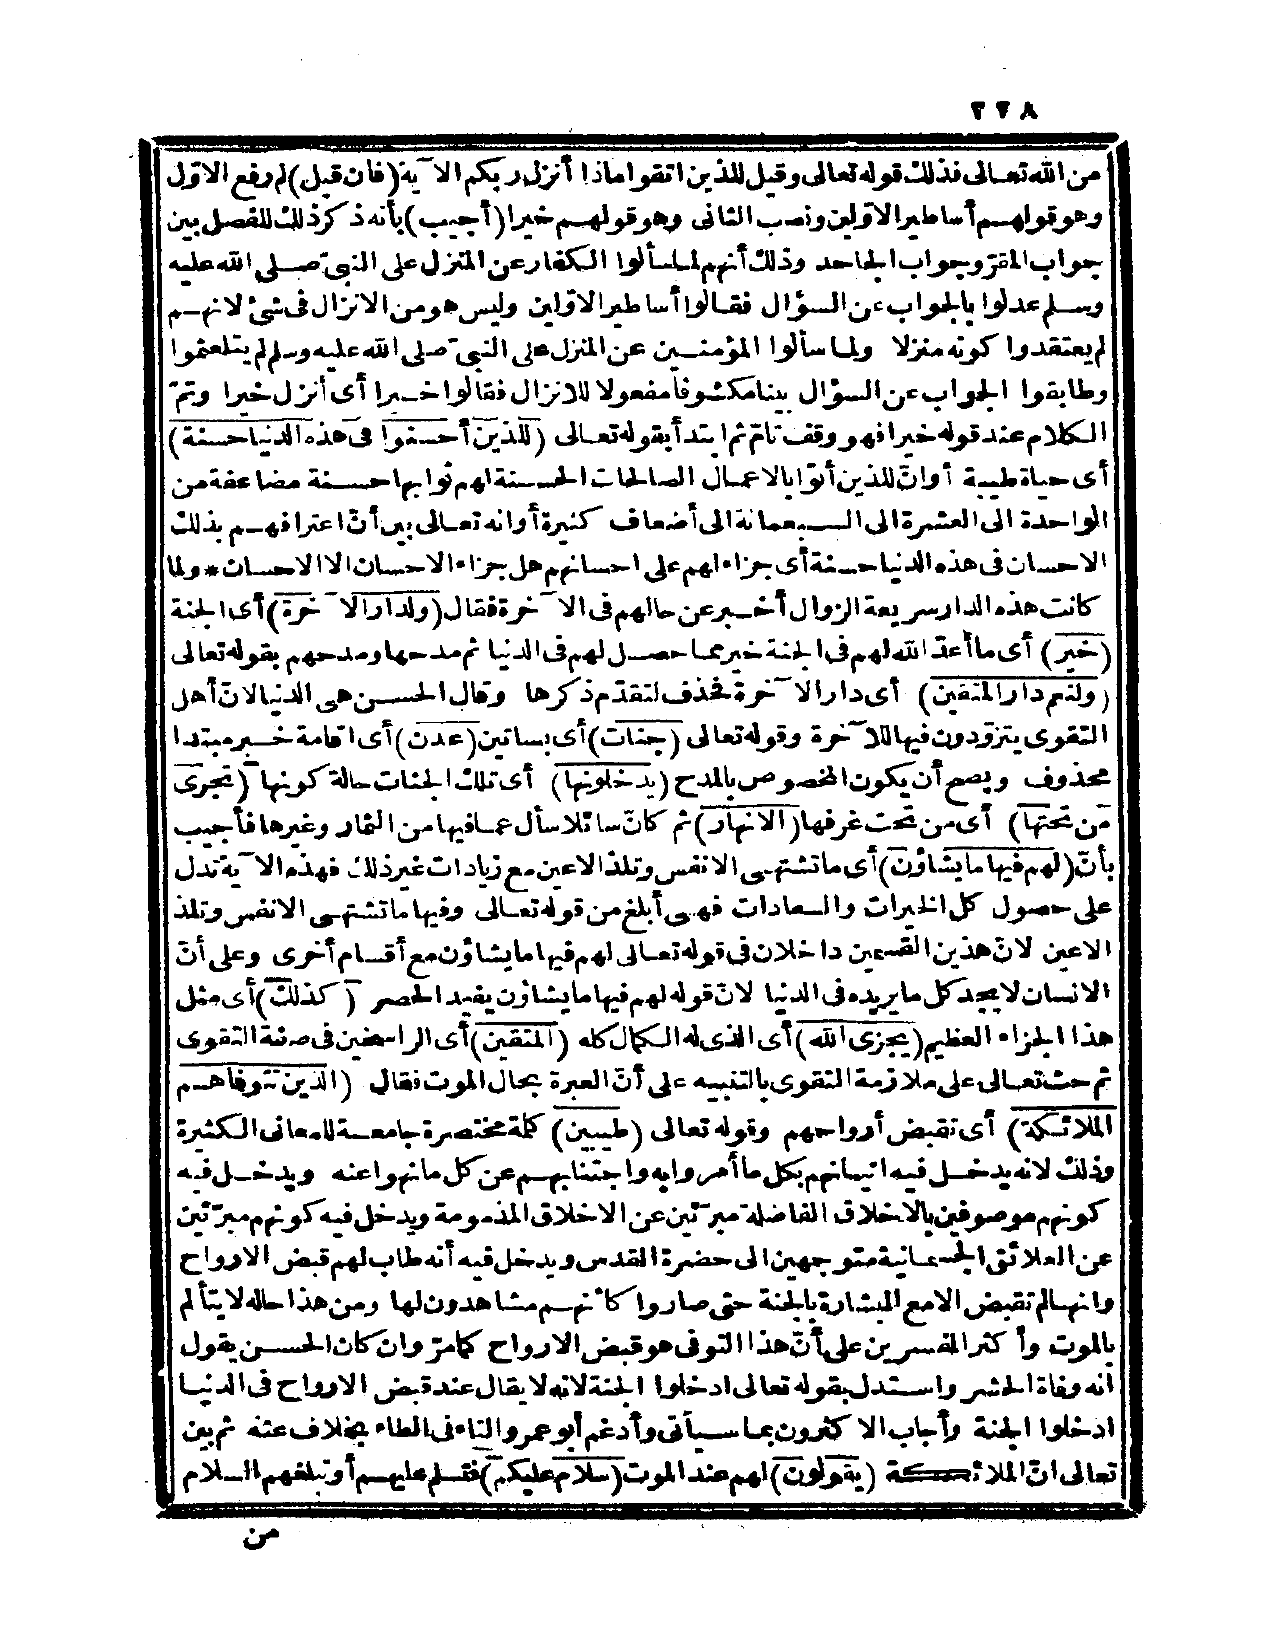 ٢٢٨
من الله تعالى فذلك قوله تعالى وقيل للذين اتقوا ماذا أنزل ربكم الآية (فان قيل) لم رفع الاوّل
وهو قولهم أساطير الاوّلين ونصب الثانى وهو قولهم خيرا (أجيب) بأنه ذكر ذلك للفصل بين
جواب المقرّ وجواب الجاحد وذلك أنهم لما سألوا الكفار عن المنزل على النبىّ صلى الله عليه
وسلم عدلوا بالجواب عن السؤال فقالوا أساطير الاوّلين وليس هو من الانزال فى شئ لانهم
لم يعتقدوا كونه منزلا ولما سألوا المؤمنين عن المنزل على النبىّ صلى الله عليه وسلم لم يتلعثموا
وطابقوا الجواب عن السؤال بينا مكشوفا مفعولا للانزال فقالوا خيرا أى أنزل خيرا وتمّ
الكلام عند قوله خيرا فهو وقف تامّ ثم ابتدأ بقوله تعالى (للذين أحسنوا فى هذه الدنيا حسنة)
أى حياة طيبة أوانّ للذين أتوا بالاعمال الصالحات الحسنة لهم ثوابها حسنة مضاعفة من
الواحدة الى العشرة الى السبعمائة الى أضعاف كثيرة أوانه تعالى بين أنّ اعترافهم بذلك
الاحسان فى هذه الدنيا حسنة أى جزاء لهم على احسانهم هل جزاء الاحسان الا الاحسان * ولما
كانت هذه الدار سريعة الزوال أخبر عن حالهم فى الآخرة فقال (ولدار الآخرة) أى الجنة
(خير) أى ما أعدّ الله لهم فى الجنة خير مما حصل لهم فى الدنيا ثم مدحها ومدحهم بقوله تعالى
(ولنعم دار المتقين) أى دار الآخرة فحذف لتقدّم ذكرها وقال الحسن هى الدنيا لانّ أهل
التقوى يتزوّدون فيها للآخرة وقوله تعالى (جنات) أى بساتين (عدن) أى اقامة خبر مبتدا
محذوف ويصح أن يكون المخصوص بالمدح (يدخلونها) أى تلك الجنات حالة كونها (تجرى
من تحتها) أى من تحت غرفها (الانهار) ثم كانّ سائلا سأل عما فيها من الثمار وغيرها فأجيب
بأنّ (لهم فيها ما يشاؤن) أى ما تشتهى الانفس وتلذ الاعين مع زيادات غير ذلك فهذه الآية تدل
على حصول كل الخيرات والسعادات فهى أبلغ من قوله تعالى وفيها ما تشتهى الانفس وتلذ
الاعين لانّ هذين القسمين داخلان فى قوله تعالى لهم فيها ما يشاؤن مع أقسام أخرى وعلى أنّ
الانسان لا يجد كل ما يريده فى الدنيا لانّ قوله لهم فيها ما يشاؤن يفيد الحصر (كذلك) أى مثل
هذا الجزاء العظيم (يجزى الله) أى الذى له الكمال كله (المتقين) أى الراسخين فى صفة التقوى
ثم حث تعالى على ملازمة التقوى بالتنبيه على أنّ العبرة بحال الموت فقال (الذين تتوفاهم
الملائكة) أى تقبض أرواحهم وقوله تعالى (طيبين) كلمة مختصرة جامعة للمعانى الكثيرة
وذلك لانه يدخل فيه اتيانهم بكل ما أمروا به واجتنابهم عن كل ما نهوا عنه ويدخل فيه
كونهم موصوفين بالاخلاق الفاضلة مبرّئين عن الاخلاق المذمومة ويدخل فيه كونهم مبرّئين
عن العلائق الجسمانية متوجهين الى حضرة القدس ويدخل فيه أنه طاب لهم قبض الارواح
وانها لم تقبض الا مع البشارة بالجنة حتى صاروا كأنهم مشاهدون لها ومن هذا حاله لا يتألم
بالموت وأكثر المفسرين على أنّ هذا التوفى هو قبض الارواح كما مرّ وان كان الحسن يقول
انه وفاة الحشر واستدل بقوله تعالى ادخلوا الجنة لانه لا يقال عند قبض الارواح فى الدنيا
ادخلوا الجنة وأجاب الاكثرون بما سيأتى وأدغم أبو عمرو التاء فى الطاء بخلاف عنه ثم بين
تعالى انّ الملائكة (يقولون) لهم عند الموت (سلام عليكم) فتسلم عليهم أو تبلغهم السلام
من